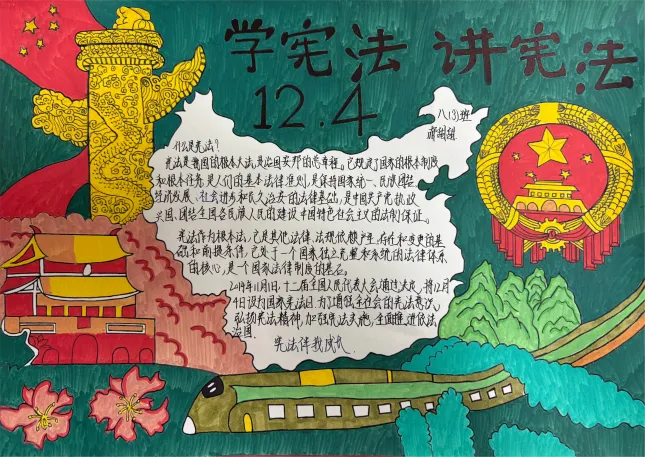 学宪法 讲宪法
12.4
八(3)班
什么是宪法?
宪法是我国的根本大法,是治国安邦的总章程。它规定了国家的根本制度
和根本任务,是人们的基本法律准则,是保持国家统一、民族团结
经济发展、社会进步和长久治安的法律基础,是中国共产党执政
兴国、团结全国各民族人民的建设中国特色社会主义的法制保证。
宪法作为根本法,它是其他法律、法规依赖产生、存在和变更的基
础和前提条件,它处于一个国家独立完整和系统的法律体系
的核心,是一个国家法律制度的基石。
2014年11月1日,十二届全国人民代表大会通过决定,将12月
4日设为国家宪法日,为了增强全社会的宪法意识,
弘扬宪法精神,加强宪法实施,全面推进依法
治国.
宪法伴我成长